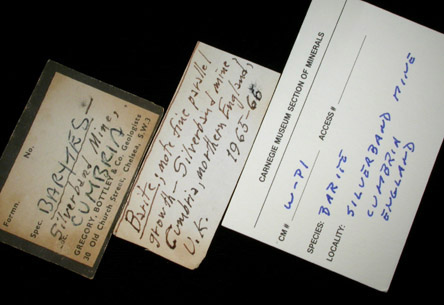 No.
Formn.
Spec. BARYTES -
Silverband Mine,
CUMBRIA.
GREGORY, BOTTLEY & Co. Geologists
30 Old Church Street, Chelsea, S.W.3
Barite, note fine parallel
growth - Silverband mine
Cumbria, northern England,
U.K. 1965-66
CARNEGIE MUSEUM SECTION OF MINERALS
CM # W-P1 ACCESS #
SPECIES: BARITE
LOCALITY: SILVERBAND MINE
CUMBRIA
ENGLAND